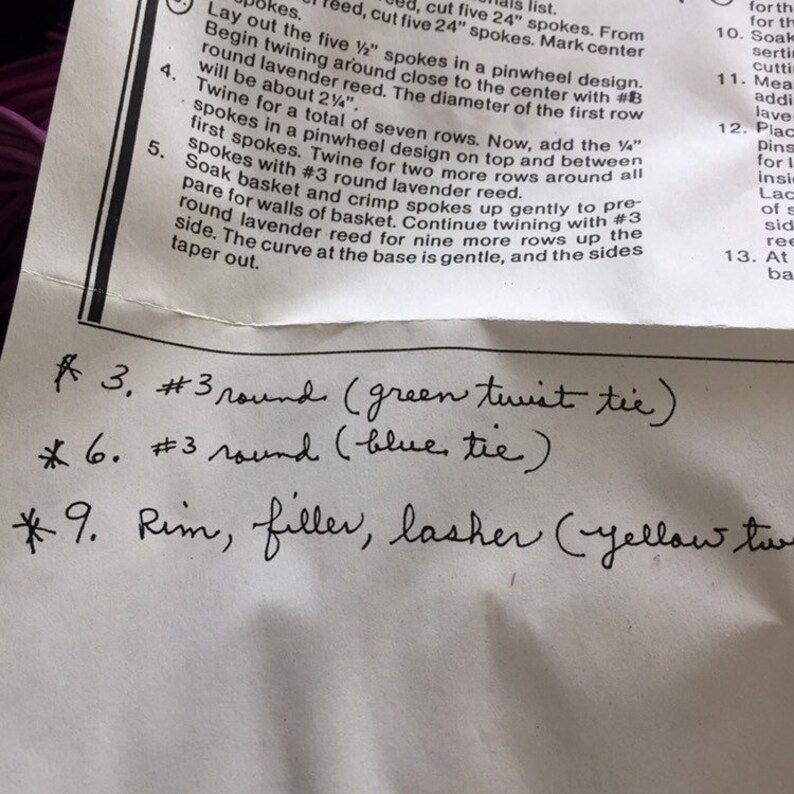 spokes.
reed, cut five 24" spokes. From
ials list.
reed, cut five 24" spokes. Mark center
Lay out the five ½" spokes in a pinwheel design.
Begin twining around close to the center with #3
round lavender reed. The diameter of the first row
will be about 2¼".
4. Twine for a total of seven rows. Now, add the ¼"
spokes in a pinwheel design on top and between
first spokes. Twine for two more rows around all
spokes with #3 round lavender reed.
5. Soak basket and crimp spokes up gently to pre-
pare for walls of basket. Continue twining with #3
round lavender reed for nine more rows up the
side. The curve at the base is gentle, and the sides
taper out.
for th
for th
10. Soak
serti
cutti
11. Mea
addi
lave
12. Plac
pins
for l
insi
Lac
of s
sid
ree
13. At
ba
* 3. #3 round (green twist tie)
* 6. #3 round (blue tie)
* 9. Rim, filler, lasher (yellow tw